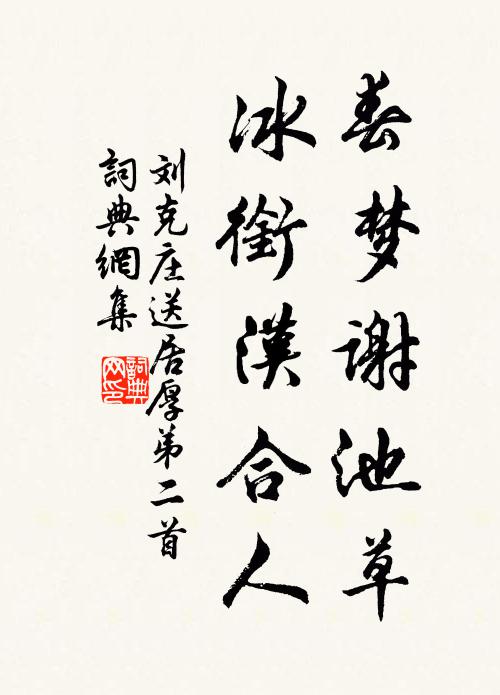 春梦谢池草
冰銜漢合人
刘克庄送居厚弟二首
詞典網集
詞典网印